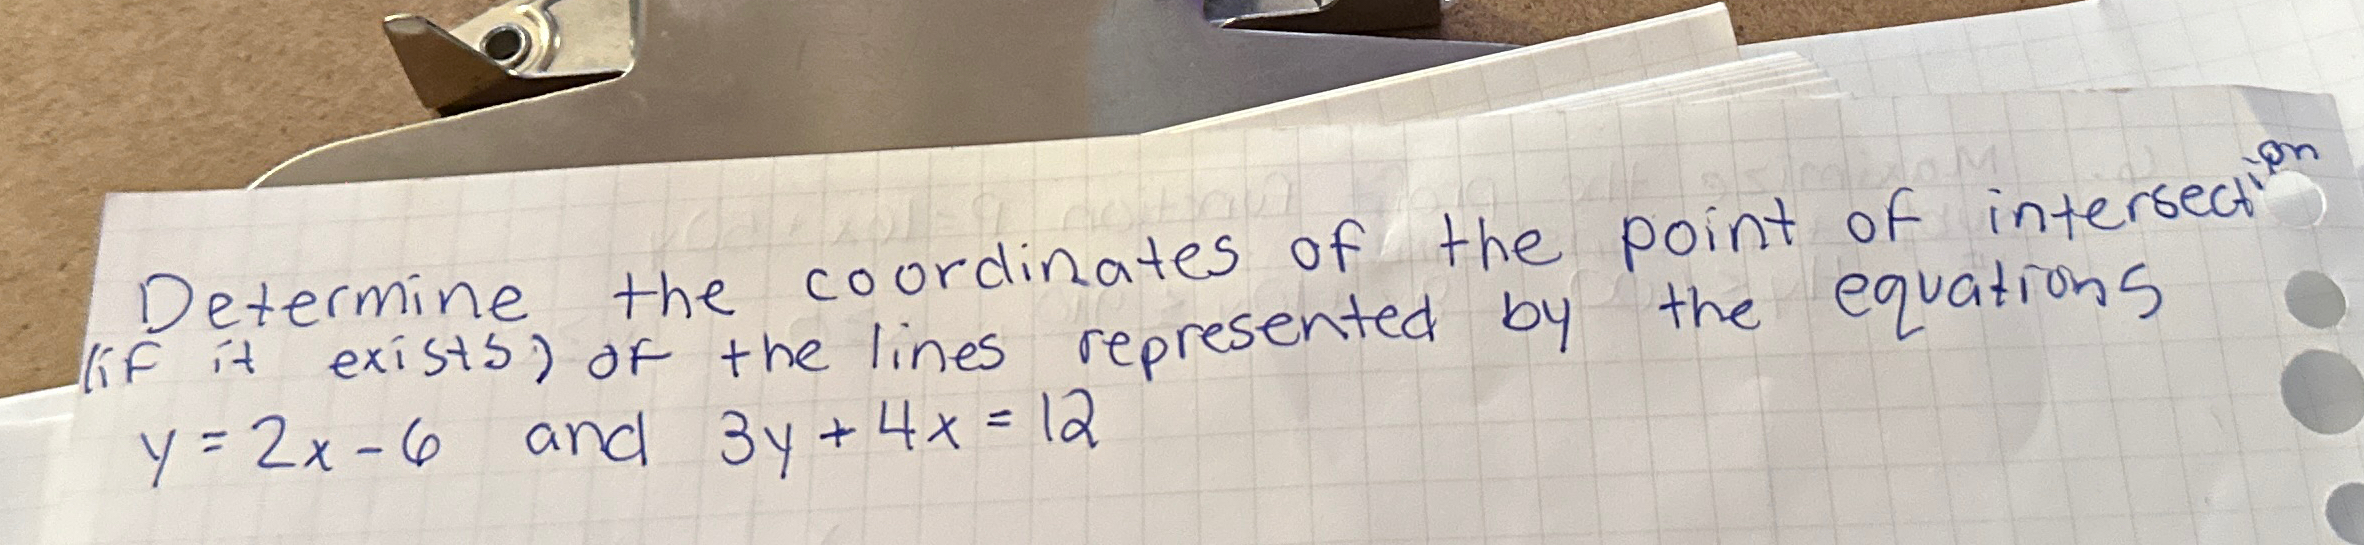 Determine the coordinates of the point of intersection
(if it exists) of the lines represented by the equations
y = 2x - 6 and 3y + 4x = 12